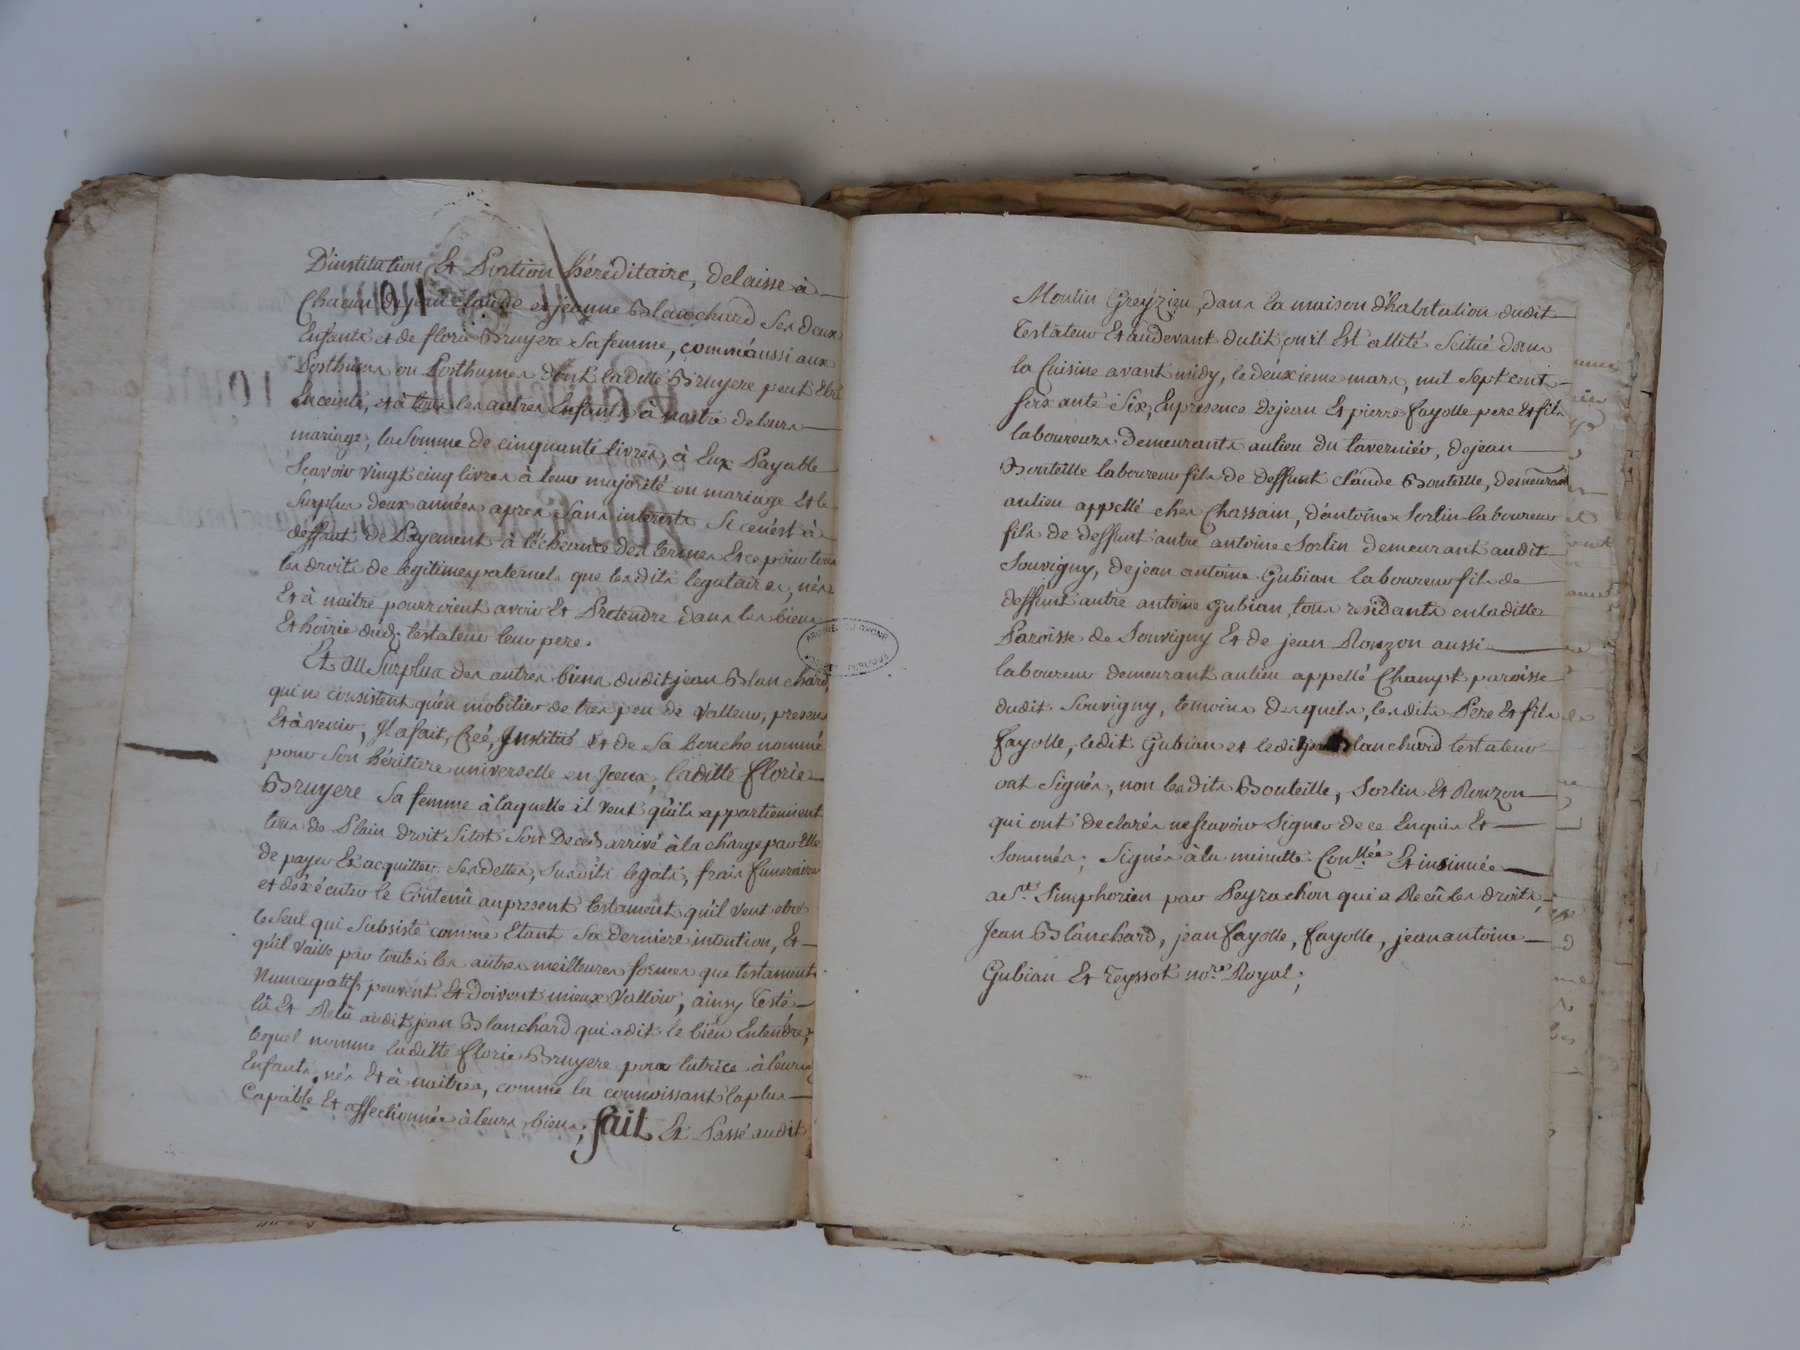 D'institution Et Portion héréditaire, delaisse à
Chacun de jean Claude et jeanne Blanchard ses deux
Enfants et de florie Bruyere sa femme, comme aussi aux
Posthume ou Posthumes dont laditte Bruyere peut Etre
Enceinte, et à tous les autres Enfants à naitre de leurs
mariage, la Somme de cinquante livres, à Eux Payable
Scavoir vingt cinq livres à leur majorité ou mariage Et le
Surplus deux années apres sans interests Si ce n'est à
deffaut de Payement à l'écheance des termes Et ce pour tous
les droits de legitimes paternels que lesdits legataires, nés
Et à naitre pourroient avoir Et Pretendre dans les biens
Et hoirie dud. testateur leur pere.
Et au Surplus des autres biens dudit jean Blanchard
qui ne consistent qu'en mobilier de tres peu de valleur, presens
Et à venir, Il a fait, Créé, Institué et de sa Bouche nommé
pour Son héritiere universelle en Iceux, laditte florie
Bruyere sa femme à laquelle il veut qu'ils appartiennent
tous de Plain droit Sitot Son Deces arrivé à la charge par Elle
de payer Et acquitter ses dettes, susdits legats, frais funeraires
et d'éxécuter le Contenû au present testament qu'il veut etre
le Seul qui Subsiste comme Etant sa derniere intention, Et
qu'il vaille par toutes les autres meilleures formes que testaments
Nuncupatifs peuvent Et doivent mieux Valloir, ainsy testé
lû Et Relû audit jean Blanchard qui a dit le bien Entendre,
lequel nomme laditte florie Bruyere pour tutrice à leurs
Enfants nés Et à naitres, comme la connoissant la plus
Capable Et affectionnée à leurs biens; fait Et Passé audit
Moulin Greyzieu, dans la maison d'habitation dudit
Testateur Et audevant du lit ou il Est allité Scitué dans
la Cuisine avant midy, le deuxieme mars, mil Sept cent
soixante Six, En presence de jean Et pierre fayolle pere Et fils
laboureurs demeurants au lieu du tavernier, de jean
Bouteille laboureur fils de deffunt claude Bouteille, demeurant
au lieu appellé ches Chassain, d'antoine Sorlin laboureur
fils de deffunt autre antoine Sorlin demeurant audit
Souvigny, de jean antoine Gubian laboureur fils de
deffunt autre antoine Gubian, tous residants en laditte
Paroisse de Souvigny Et de jean Rouzon aussi
laboureur demeurant au lieu appellé Champt paroisse
dudit Souvigny, temoins desquels, lesdits Pere Et fils
fayolle, ledit Gubian et ledit jean Blanchard testateur
ont Signés, non lesdits Bouteille, Sorlin Et Rouzon
qui ont declarés ne scavoir Signer de ce Enquis Et
Sommés; Signés à la minutte Conllée Et insinuée
a St. Simphorien par Peyrachon qui a Recû les droits,
Jean Blanchard, jean fayolle, fayolle, jean antoine
Gubian Et Teyssot no.re Royal;